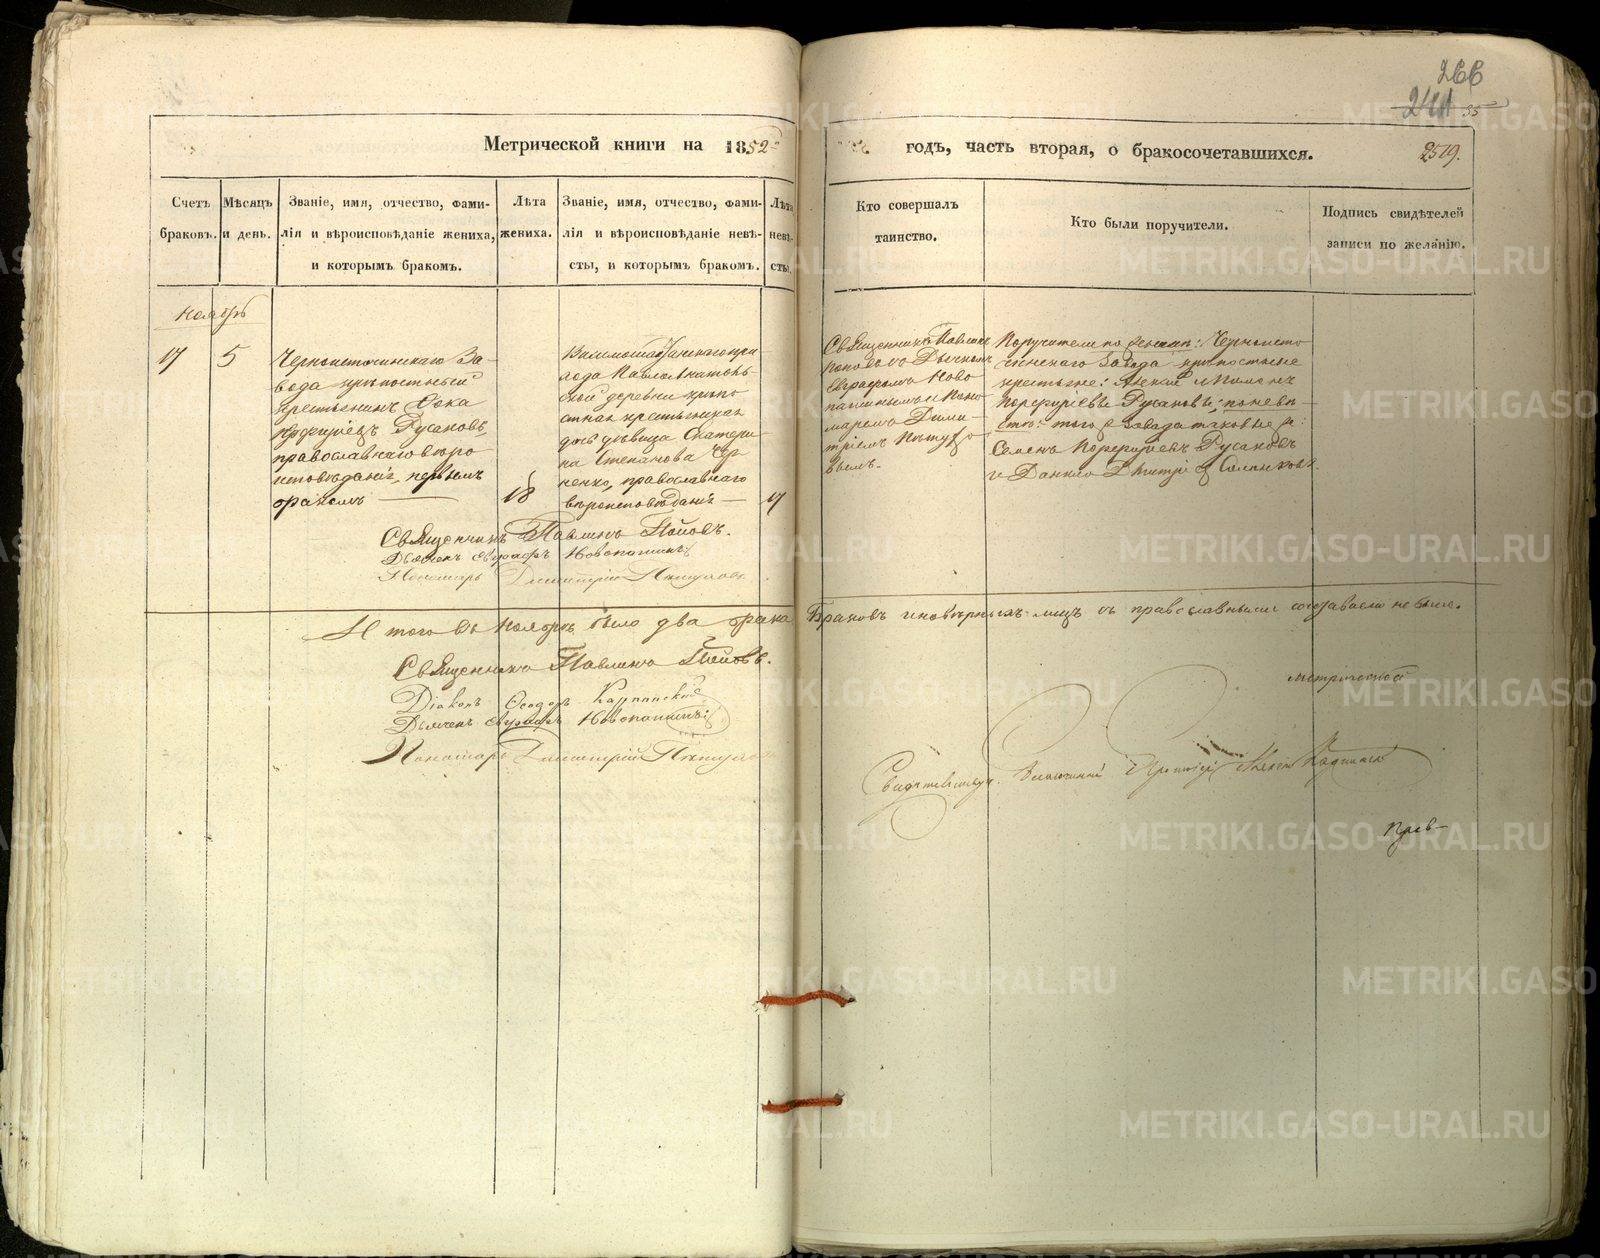 266
241 55
Метрической книги на 1852
годъ, часть вторая, о бракосочетавшихся.
2519.
Счетъ браковъ.
Мѣсяцъ и день.
Званіе, имя, отчество, фами-
лія и вѣроисповѣданіе жениха,
и которымъ бракомъ.
Лѣта жениха.
Званіе, имя, отчество, фами-
лія и вѣроисповѣданіе невѣ-
сты, и которымъ бракомъ.
Лѣта невѣ-
сты.
Кто совершалъ
таинство.
Кто были поручители.
Подпись свидѣтелей
записи по желанію.
Ноябрь
17
5
Черноисточинскаго За-
вода крѣпостный
крестьянинъ Фока
Порфиріевъ Русаковъ,
православнаго вѣро
исповѣданія, первымъ
бракомъ
18
Висимошайтанскаго при
хода Павлоанатоль
ской деревни крѣпо
стная крестьянская
дѣвица Екатери
на Степанова
православнаго
вѣроисповѣданія
17
Священникъ Павлинъ
Поповъ съ Дьячкомъ
Евграфомъ Ново
пашинымъ и Поно
маремъ Дими
тріемъ Пѣтухо
вымъ.
Поручители по жених: Черноисто
чинскаго завода крѣпостные
крестьяне: Алексѣй и Пименъ
Порфиріевы Русаковы; по невѣ-
стѣ: того завода таковые
Семенъ Порфиріевъ Русаковъ
и Данило
Священникъ Павлинъ Поповъ.
Дьячекъ Евграфъ Новопашинъ
Пономарь Димитрій Пѣтуховъ
Итого въ Ноябрѣ было два брака
Браковъ иновѣрныхъ лицъ съ православными не было.
Священникъ Павлинъ Поповъ.
Діаконъ Ѳеодоръ Карпинскій
Дьячекъ Евграфъ Новопашинъ
Пономарь Димитрій Пѣтуховъ
метрической
METRIKI.GASO-URAL.RU